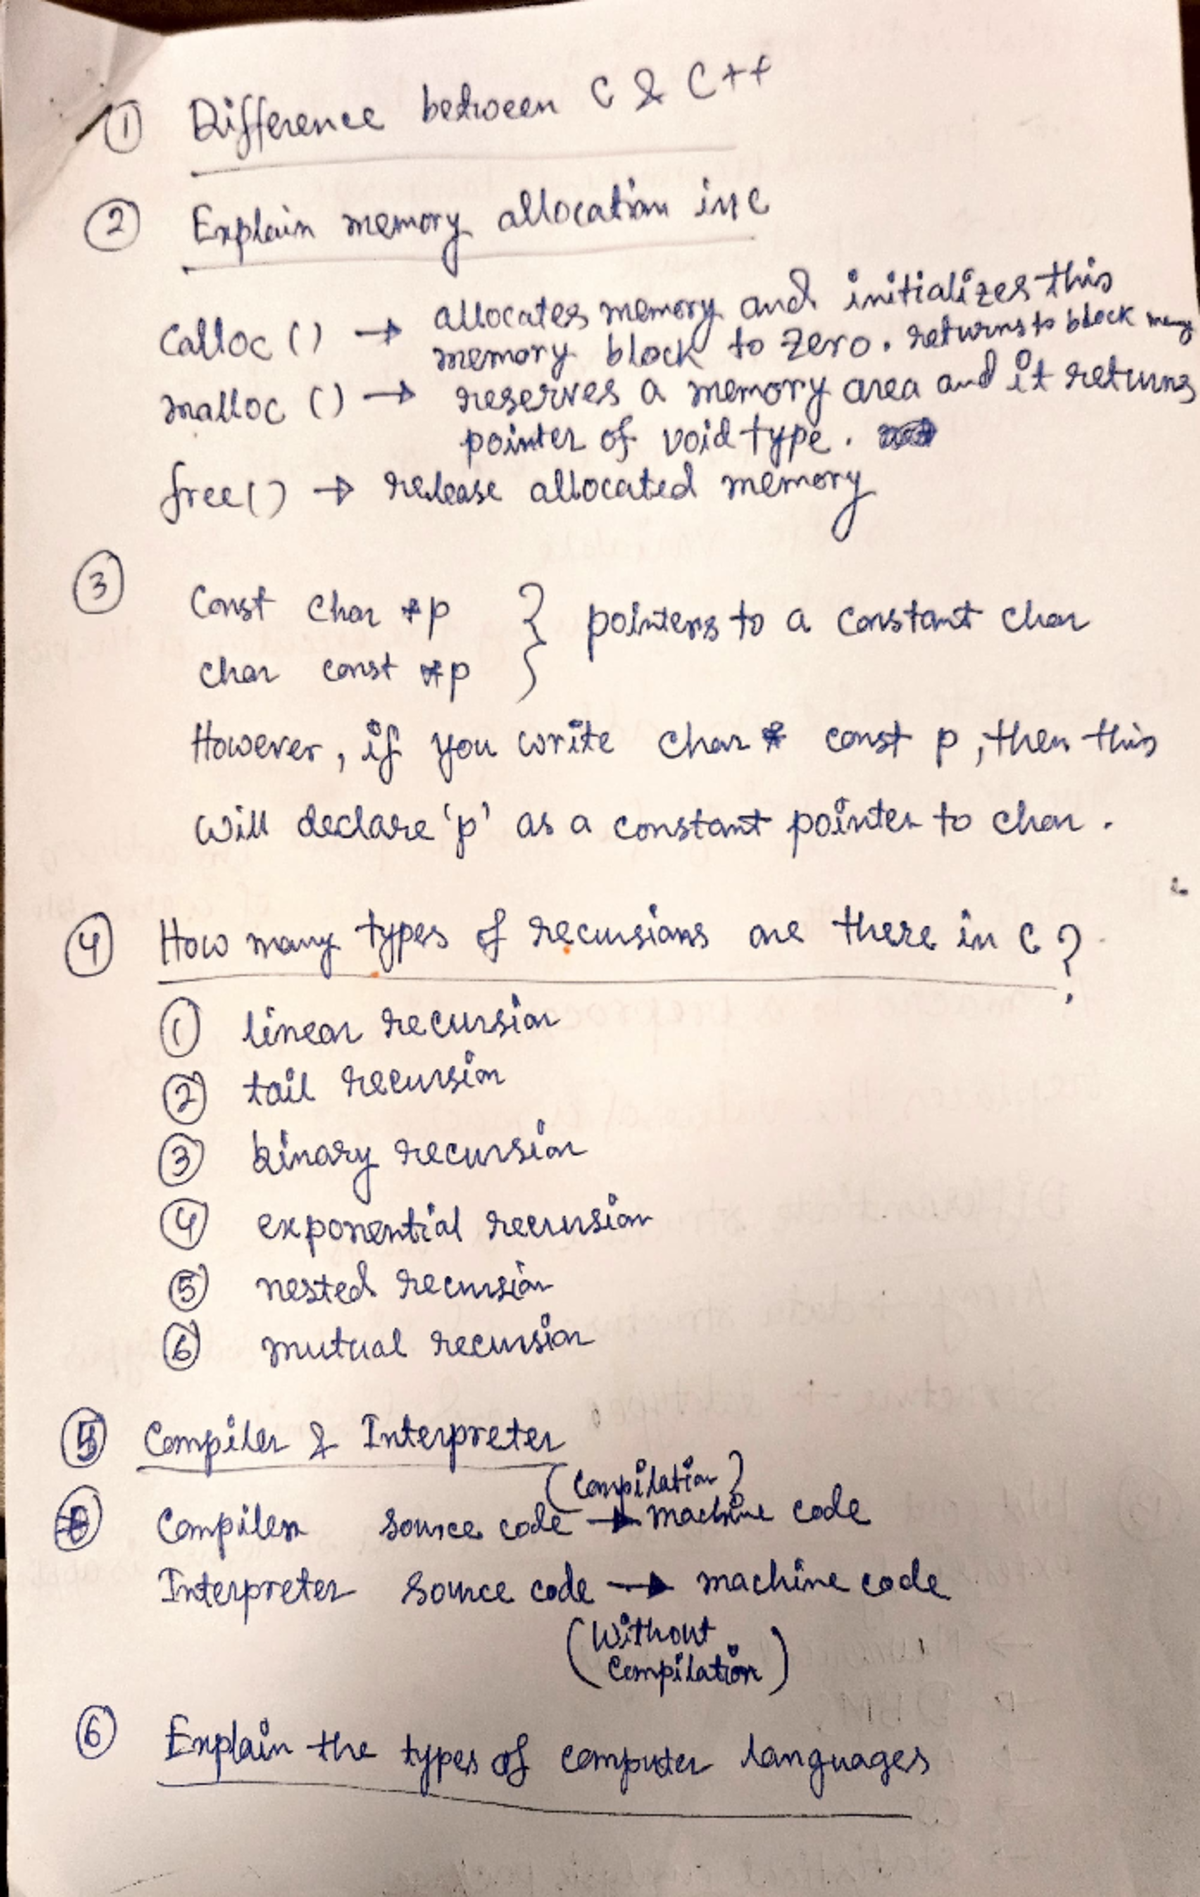 ① Difference between C & C++
② Explain memory allocation in c
calloc () → allocates memory and initializes this
memory block to zero. returns to block
malloc () → reserves a memory area and it returns
pointer of void type.
free() → release allocated memory
③
Const char *p } pointers to a constant char
char const *p
However, if you write char * const p, then this
will declare 'p' as a constant pointer to char.
④ How many types of recursions are there in C?
① linear recursion
② tail recursion
③ binary recursion
④ exponential recursion
⑤ nested recursion
⑥ mutual recursion
⑤ Compiler & Interpreter
(Compilation)
Compiler source code → machine code
Interpreter source code → machine code
(Without
Compilation)
⑥ Explain the types of computer languages